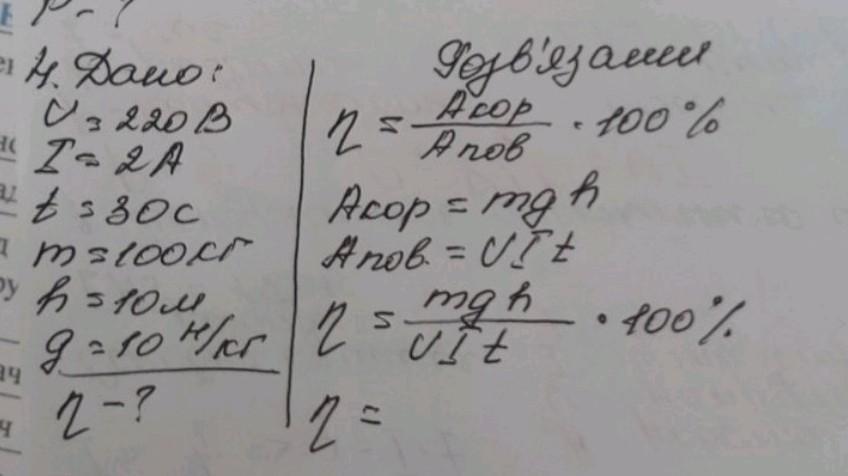 P - ?
4. Дано:
U = 220 В
I = 2 А
t = 30 с
m = 100 кг
h = 10 м
g = 10 Н/кг
η - ?
Розв'язання
η = Aкор / Aпов · 100%
Aкор = mgh
Aпов. = UIt
η = mgh / UIt · 100%
η =